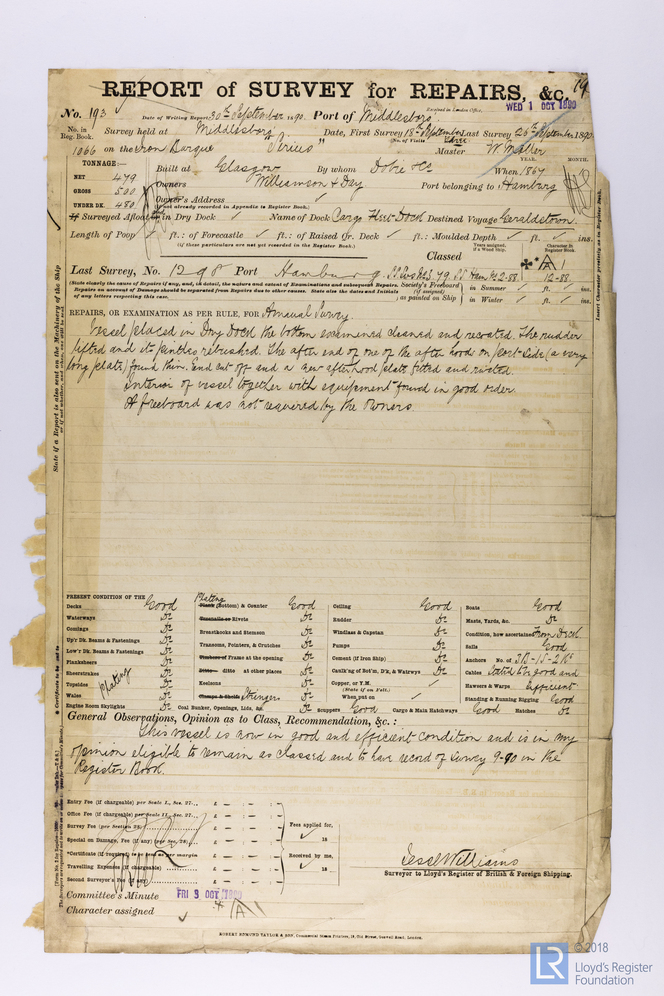 REPORT of SURVEY for REPAIRS, &c.
No. 193 Date of Writing Report 30th September 1890. Port of Middlesbro'
Received in London Office, WED 1 OCT 1890
No. in Reg. Book. Survey held at Middlesbro Date, First Survey 18th September Last Survey 26th September 1890
(No. of Visits Three)
1066 on the Iron Barque "Sirius" Master W. Müller
TONNAGE:— YEAR. MONTH.
NET 479 Built at Glasgow By whom Dobie & Co When 1867
GROSS 500 Owners Williamson & Day Port belonging to Hamburg
UNDER DK. 450 Owner's Address
(if not already recorded in Appendix to Register Book.)
If Surveyed Afloat or in Dry Dock Name of Dock Destined Voyage Geraldstown.
Length of Poop ft.: of Forecastle ft.: of Raised Qr. Deck ft.: Moulded Depth ft. ins.
(if these particulars are not yet recorded in the Register Book.)
Classed
Last Survey, No. 1298 Port Hamburg 12-88
(State clearly the cause of Repairs if any, and, in detail, the nature and extent of Examinations and subsequent Repairs.
Repairs on account of Damage should be separated from Repairs due to other causes. State also the dates and Initials
of any letters respecting this case.
Society's Freeboard (if assigned) as painted on Ship in Summer ft. ins.
in Winter ft. ins.
REPAIRS, OR EXAMINATION AS PER RULE, FOR Annual Survey.
Vessel placed in Dry Dock the bottom examined cleaned and recoated. The rudder
lifted and its pintles rebushed. The after end of one of the after hoods on port side (a very
long plate) found thin. End cut off and a new afterhood plate fitted and riveted.
Interior of vessel together with equipment found in good order.
A freeboard was not required by the Owners.
PRESENT CONDITION OF THE
Decks Good
Waterways Do
Comings Do
Up'r Dk. Beams & Fastenings Do
Low'r Dk. Beams & Fastenings Do
Planksheers Do
Sheerstrakes Do
Topsides Do
Wales Do
Plating
Engine Room Skylights Do
Plating
Plank (Bottom) & Counter Good
Treenails or Rivets Do
Breasthooks and Stemson Do
Transoms, Pointers, & Crutches Do
Timbers of Frame at the opening Do
Ditto ditto at other places Do
Keelsons Do
Clamps & Shelfs Stringers Do
Coal Bunker, Openings, Lids, &c. Do
Ceiling Good
Rudder Do
Windlass & Capstan Do
Pumps Do
Cement (if Iron Ship) Do
Caulk'ng of Bot'm, D'k, & Watrways Do
Copper, or Y.M.
(State if on Felt.)
When put on
Scuppers Good Cargo & Main Hatchways Good
Boats Good
Masts, Yards, &c. Do
Condition, how ascertained From Deck
Sails Good
Anchors No. of 3B-1S-2K's
Cables Stated to be good and
Hawsers & Warps efficient
Standing & Running Rigging Good
Hatches Do
General Observations, Opinion as to Class, Recommendation, &c.:
This vessel is now in good and efficient condition and is in my
opinion eligible to remain as classed and to have record of survey 9-90 in the
Register Book.
Entry Fee (if chargeable) per Scale I., Sec. 27... £
Office Fee (if chargeable) per Scale II., Sec. 27... £
Survey Fee (per Section 28) £
Special on Damage, Fee (if any) (per Sec. 28) £
Certificate (if required) to be sent as per margin £
Travelling Expenses (if chargeable) £
Second Surveyor's Fee (if any) £
Fees applied for, 18
Received by me, 18
Jesse Williams
Surveyor to Lloyd's Register of British & Foreign Shipping.
Committee's Minute FRI 3 OCT 1890
Character assigned A1
ROBERT EDMUND TAYLOR & SON, Commercial Steam Printers, 19, Old Street, Goswell Road, London.
State if a Report is also sent on the Machinery of the Ship
Insert Character precisely as in Register Book.
LR
© 2018
Lloyd's Register
Foundation